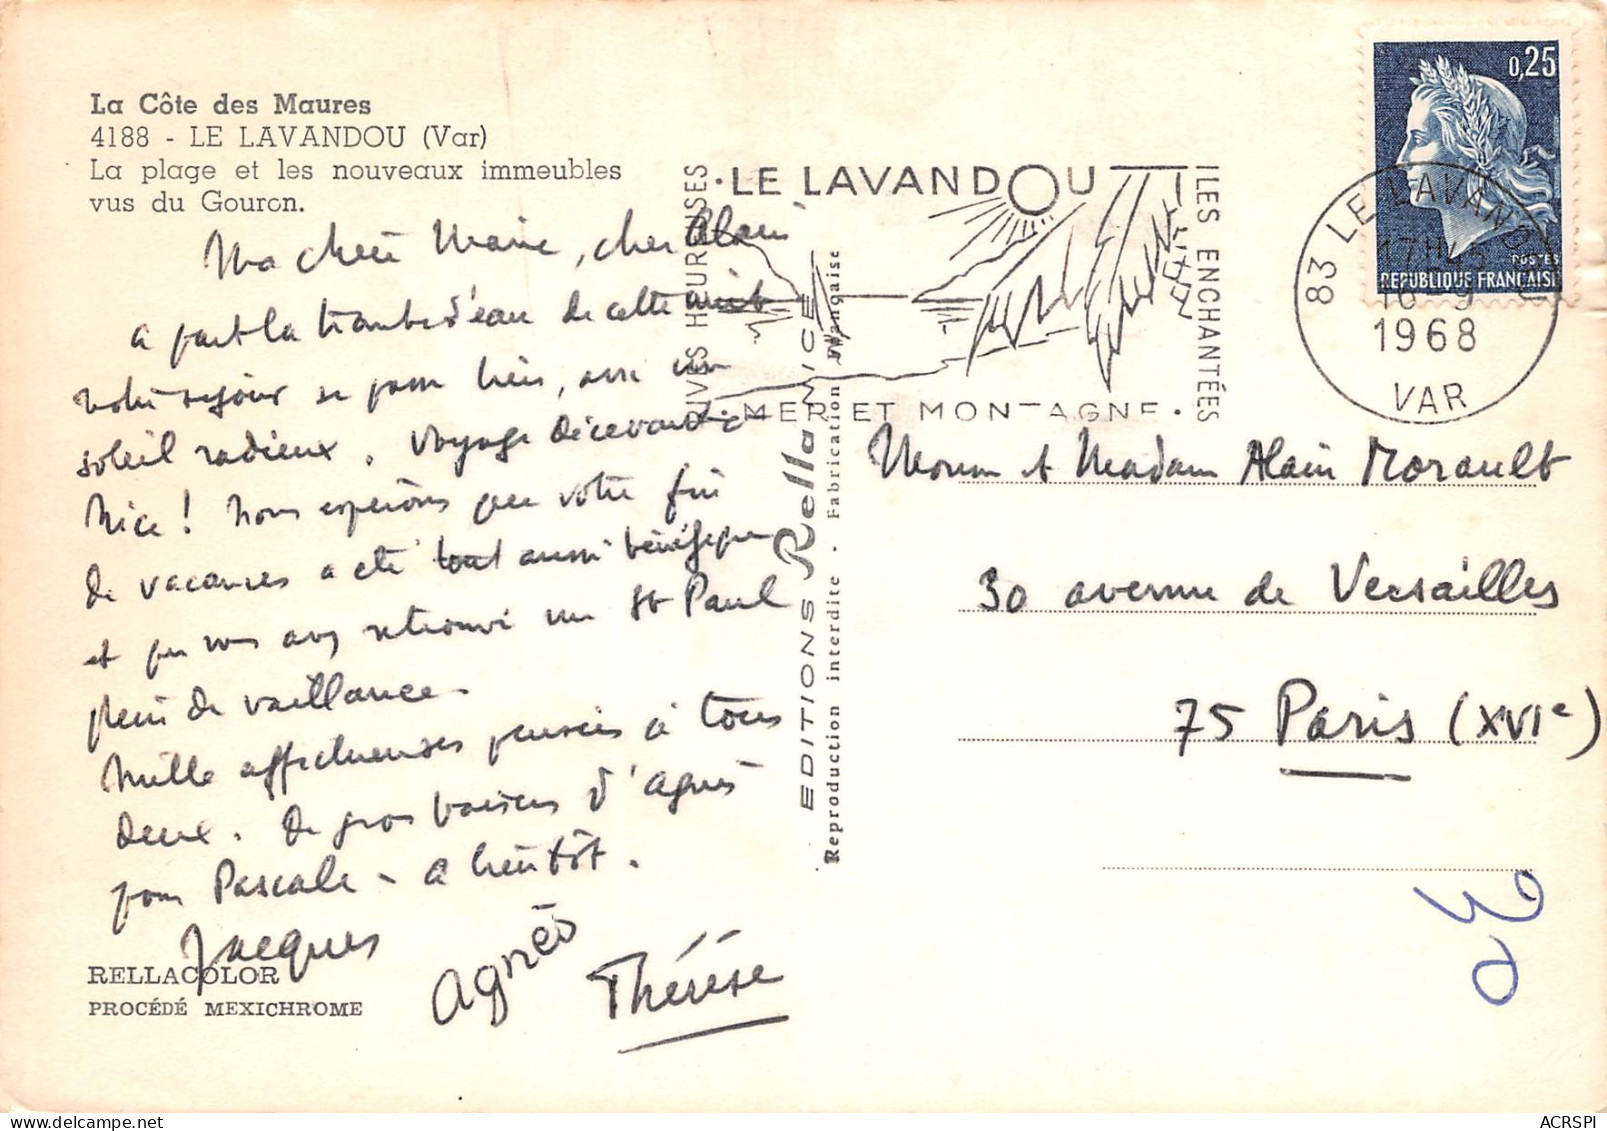 La Côte des Maures
4188 - LE LAVANDOU (Var)
La plage et les nouveaux immeubles
vus du Gouron.
Ma chère Marie, cher Alain
a part la trombe d'eau de cette nuit
notre séjour se passe bien, avec un
soleil radieux. Voyage décevant à
Nice ! Nous espérons que votre fin
de vacances a été tout aussi bénéfique
et que vous avez retrouvé un St Paul
plein de vaillance.
Mille affectueuses pensées à tous
deux. De gros baisers d'Agnès
pour Pascale - a bientôt.
Jacques
Agnès
Thérèse
RELLACOLOR
PROCÉDÉ MEXICHROME
EDITIONS Rella NICE
Reproduction interdite - Fabrication Française
RIVES HEUREUSES
LE LAVANDOU
ILES ENCHANTÉES
MER ET MONTAGNE
0,25
POSTES
REPUBLIQUE FRANÇAISE
83 LE LAVANDOU
17H45
16-9
1968
VAR
Monsieur et Madame Alain Morault
30 avenue de Versailles
75 Paris (XVIe)
30
ACRSPI